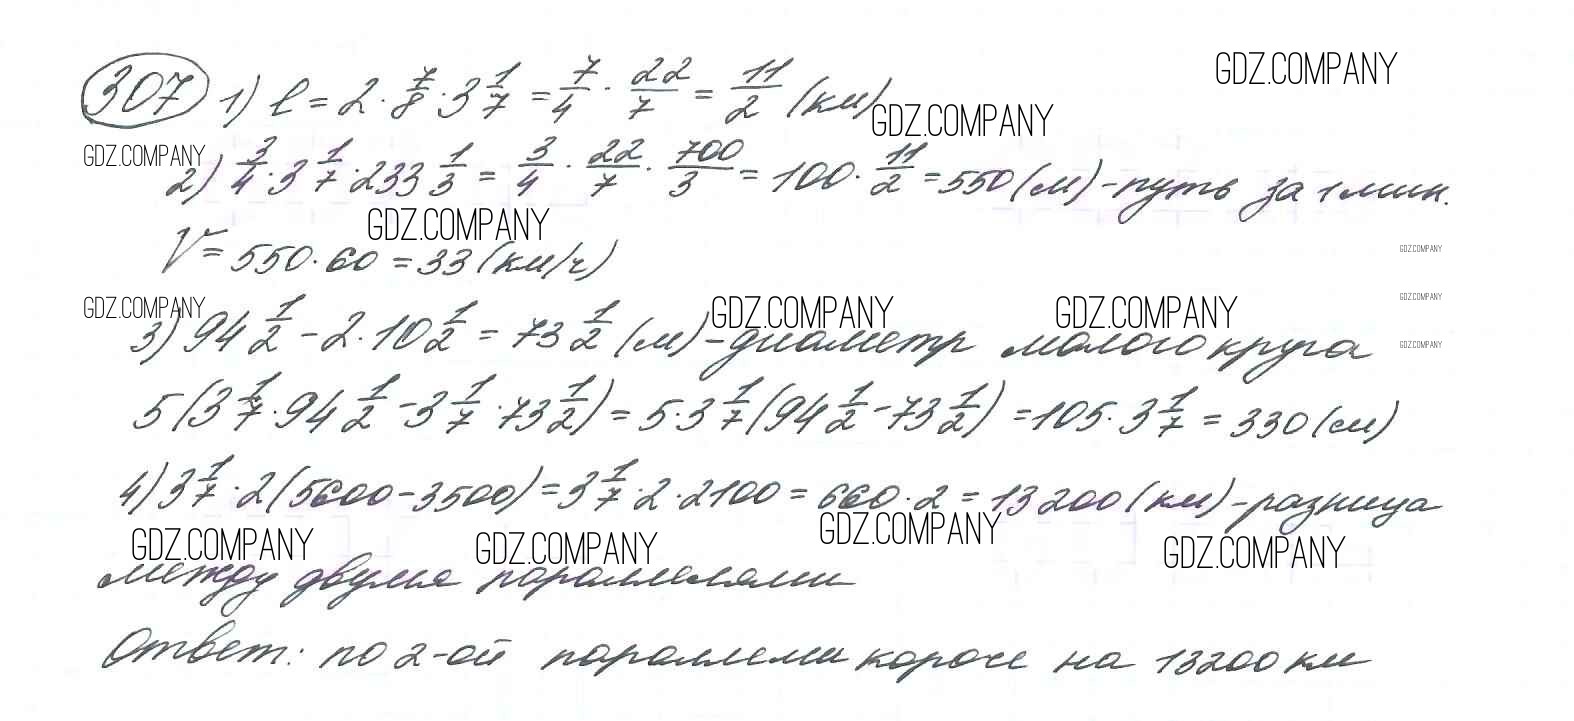 307 1) ℓ = 2 · 7/8 · 3 1/7 = 7/4 · 22/7 = 11/2 (км)
GDZ.COMPANY
GDZ.COMPANY
GDZ.COMPANY
2) 3/4 · 3 1/7 · 233 1/3 = 3/4 · 22/7 · 700/3 = 100 · 11/2 = 550 (м) - путь за 1 мин.
GDZ.COMPANY
V = 550 · 60 = 33 (км/ч)
GDZ.COMPANY
GDZ.COMPANY
GDZ.COMPANY
GDZ.COMPANY
GDZ.COMPANY
3) 94 1/2 - 2 · 10 1/2 = 73 1/2 (м) - диаметр малого круга
GDZ.COMPANY
5 (3 1/7 · 94 1/2 - 3 1/7 · 73 1/2) = 5 · 3 1/7 (94 1/2 - 73 1/2) = 105 · 3 1/7 = 330 (м)
4) 3 1/7 · 2 (5600 - 3500) = 3 1/7 · 2 · 2100 = 660 · 2 = 13200 (км) - разница
GDZ.COMPANY
GDZ.COMPANY
GDZ.COMPANY
GDZ.COMPANY
между двумя параллелями
Ответ: по 2-ой параллели короче на 13200 км